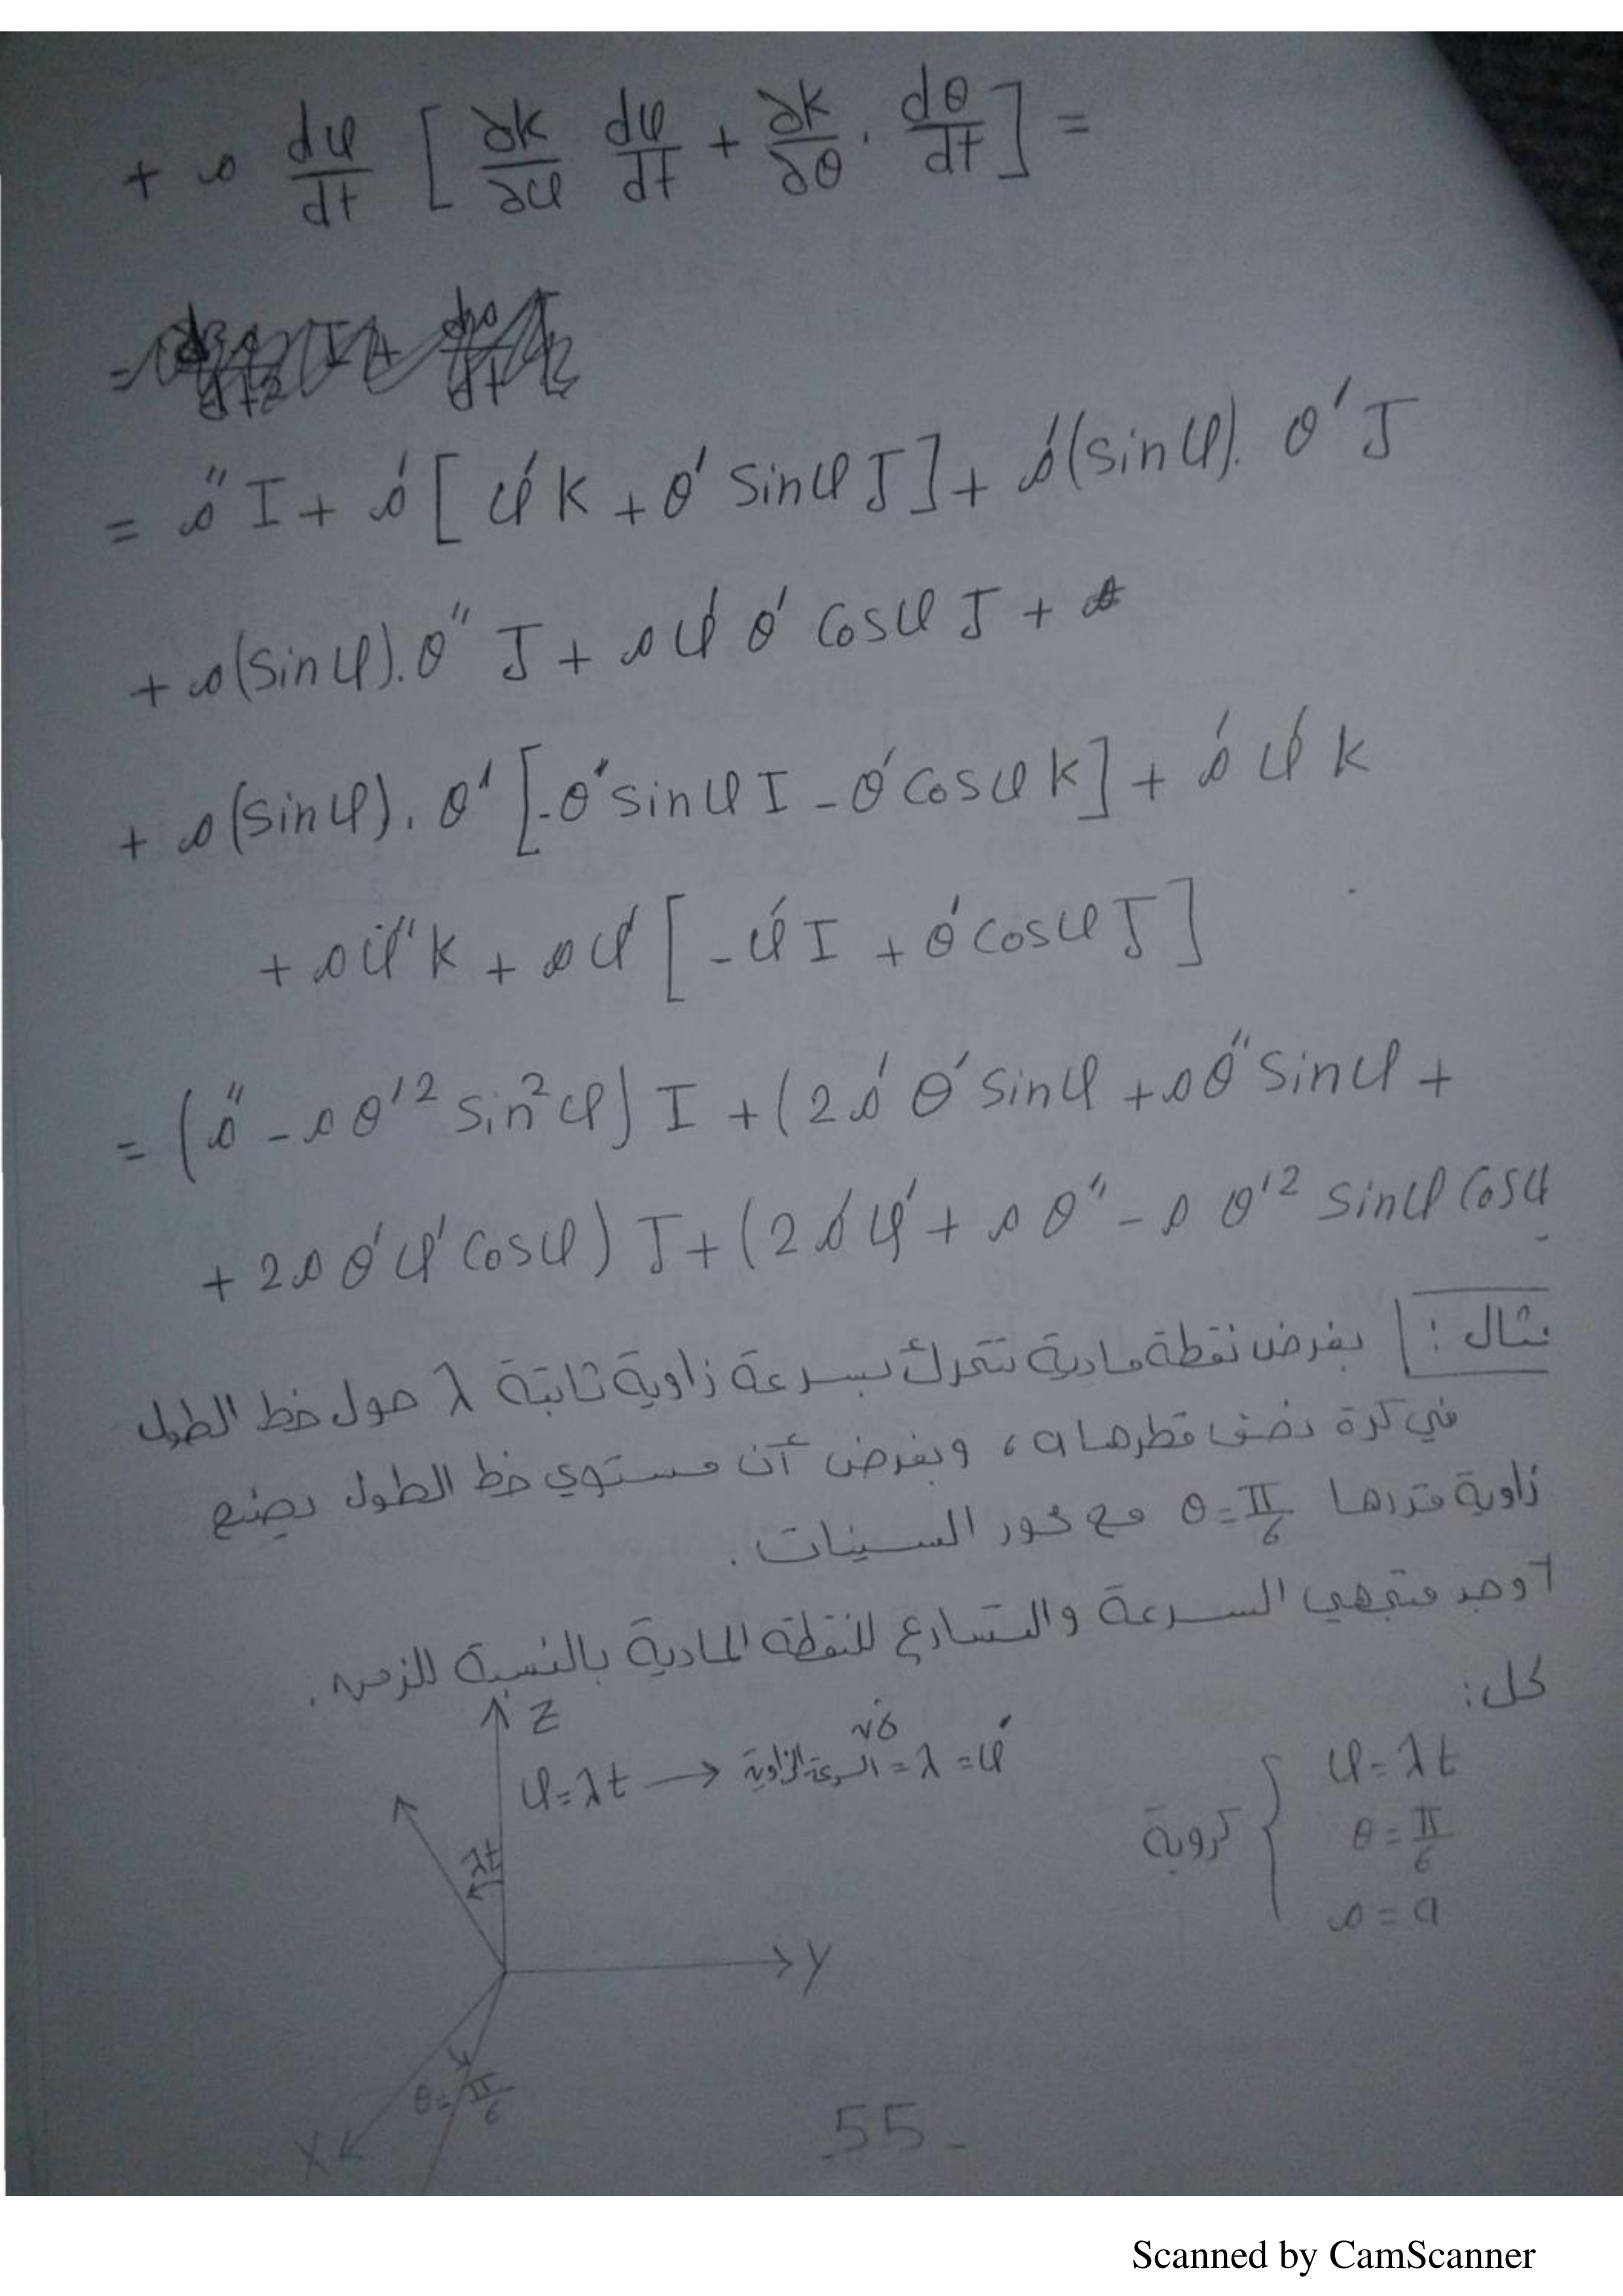 + ρ dφ/dt [ ∂k/∂φ dφ/dt + ∂k/∂θ . dθ/dt ] =
= ρ″ I + ρ′ [ φ′ k + θ′ sinφ J ] + ρ′(sinφ). θ′ J
+ ρ(sinφ). θ″ J + ρ φ′ θ′ cosφ J +
+ ρ(sinφ). θ′ [ -θ′ sinφ I - θ′ cosφ k ] + ρ′ φ′ k
+ ρ φ″ k + ρ φ′ [ -φ′ I + θ′ cosφ J ]
= (ρ″ - ρ θ′² sin²φ) I + (2 ρ′ θ′ sinφ + ρ θ″ sinφ +
+ 2 ρ θ′ φ′ cosφ) J + (2 ρ′ φ′ + ρ θ″ - ρ θ′² sinφ cosφ
مثال : بفرض نقطة مادية تتحرك بسرعة زاوية ثابتة λ حول خط الطول
في كرة نصف قطرها a ، وبفرض أن مستوي خط الطول يصنع
زاوية قدرها θ = π/6 مع محور السينات .
أوجد متجهي السرعة والتسارع للنقطة المادية بالنسبة للزمن .
كل :
Z
φ = λt → السرعة الزاوية = λ = φ′
كروية { φ = λt
θ = π/6
ρ = a
λt
Y
θ = π/6
X
- 55 -
Scanned by CamScanner